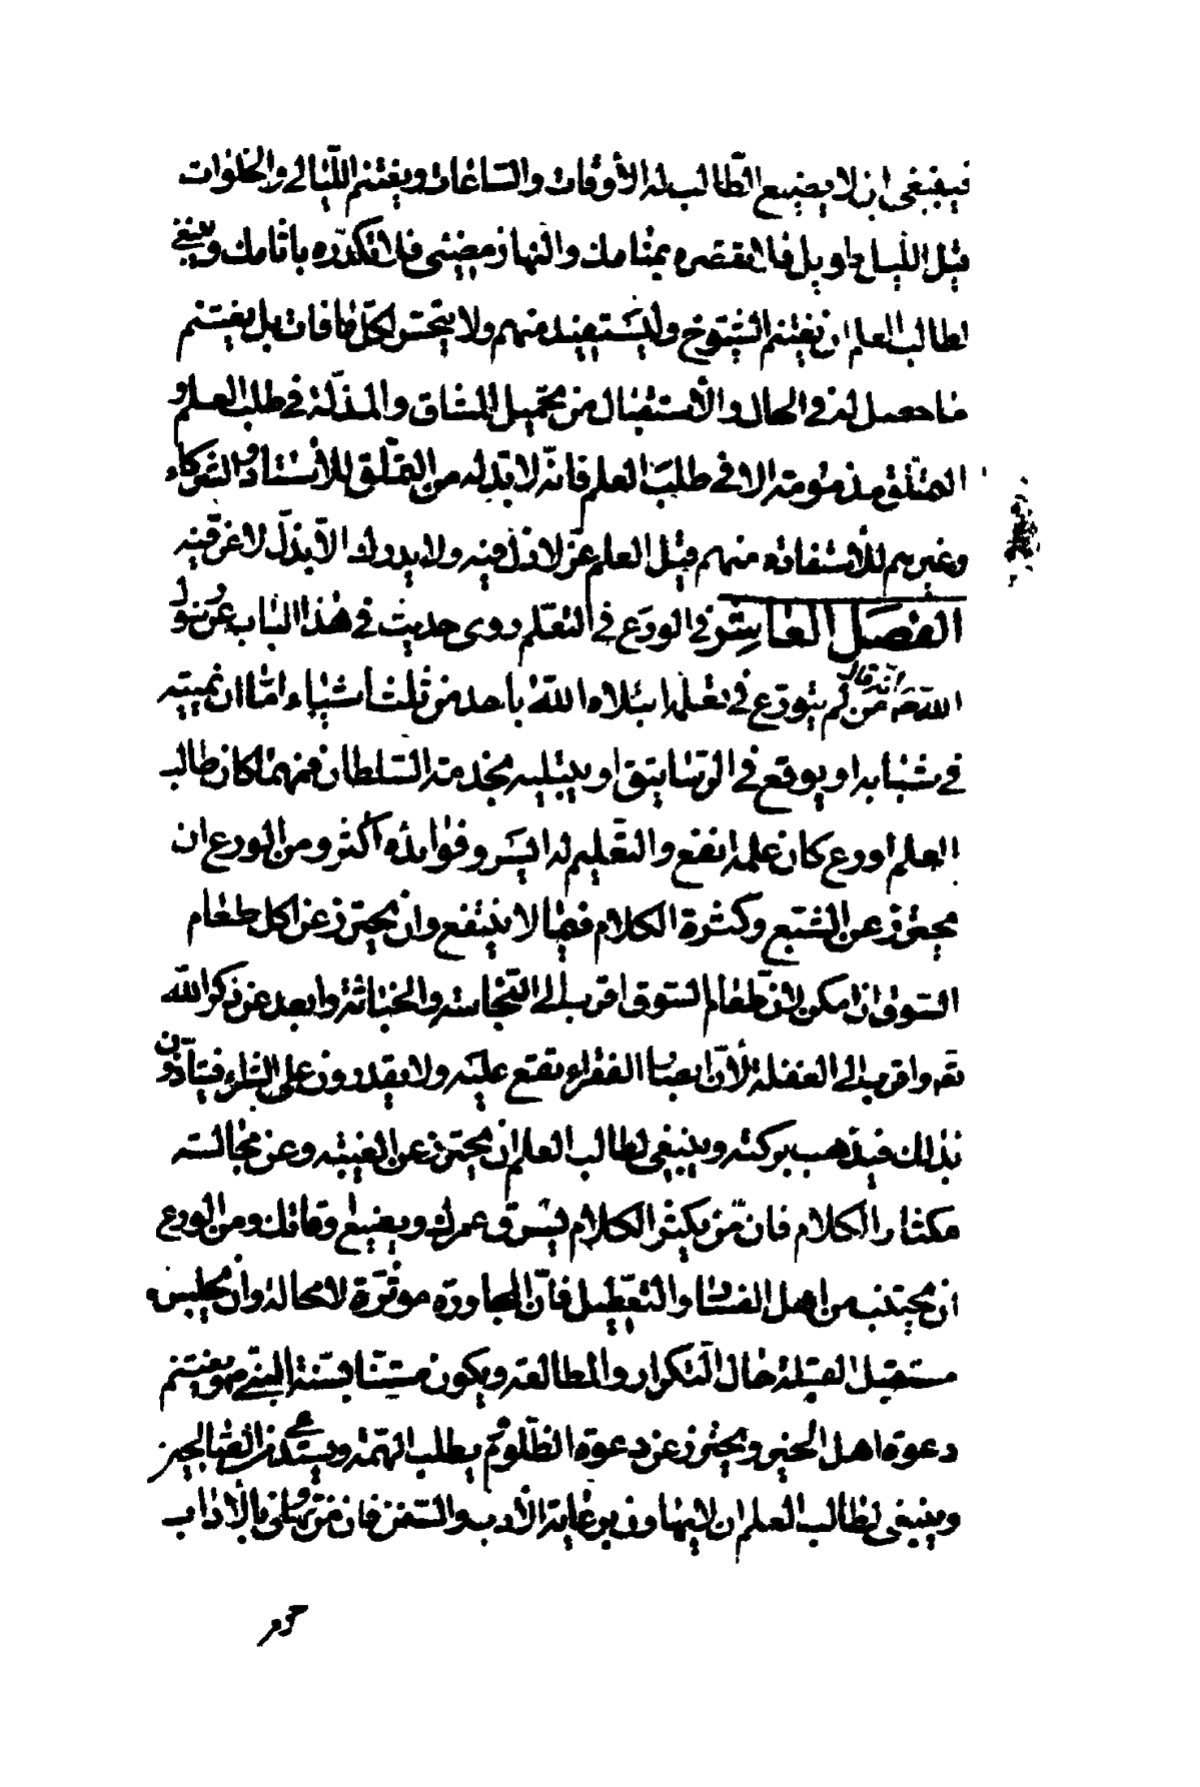 فينبغى ان لا يضيع الطّالب له الأوقات والسّاعات ويغتنم اللّيالى والخلوات
قيل اللّيل طويل فلا تقصره بمنامك والنّهار مضيئ فلا تكدّره بآثامك وينبغى
لطالب العلم ان يغتنم الشّيوخ وليستفيد منهم ولا يتحسّر لكلّ ما فات بل يغتنم
ما حصل له فى الحال والأستقبال من تحميل المشاق والمذلّة فى طلب العلم و
التملّق مذمومة الا فى طلب العلم فانّه لا بدّ له من التملّق للأستاد والشركاء
وغيرهم للأستفادة منهم قيل العلم عزّ لا ذلّ فيه ولا يدرك الّا بذلّ لا عزّ فيه
الفصل العاشر فى الورع فى التعلّم روى حديث فى هذا الباب عن رسول
اللّه ص انّه قال من لم يتورّع فى تعلّمه ابتلاه اللّه بأحد من ثلث أشياء امّا ان يميته
فى شبابه او يوقع فى الرّساتيق او يبتليه بخدمة السّلطان فمهما كان طالب
العلم اورع كان علمه انفع والتعّليم له ايسر وفوايده اكثر ومن الورع ان
يحترز عن الشّبع وكثرة الكلام فيما لا ينتفع وان يحترز عن اكل طعام
السّوق ان امكن لانّ طعام السّوق اقرب الى النّجاسة والخباثة وابعد عن ذكر اللّه
تع واقرب الى الغفلة لأنّ ابصار الفقراء تقع عليه ولا يقدرون على الشراء فيتأذّون
بذلك فيذهب بركته وينبغى لطالب العلم ان يحترز عن الغيبة وعن مجالسة
مكثار الكلام فانّ من يكثر الكلام يسرق عمرك ويضيع اوقاتك ومن الورع
ان يجتنب من اهل الفساد والتعّطيل فانّ المجاورة موثرّة لا محالة وان يجلس
مستقبل القبلة حال التّكرار والمطالعة ويكون مستنّا بسنّة النبّى ص ويغتنم
دعوة اهل الخير ويحترز عن دعوة المظلوم ثم يطلب الهمّة ويستدعى من الصّالحين
وينبغى لطالب العلم ان لا يتهاون برعاية الأدب والسّنن فان من تهاون بالآداب
حرم